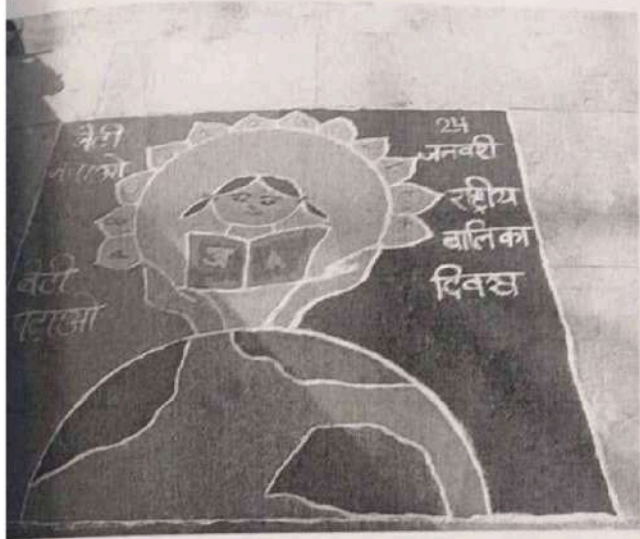 बेटी
बचाओ
बेटी
पढाओ
अ A
24
जनवरी
राष्ट्रीय
बालिका
दिवस